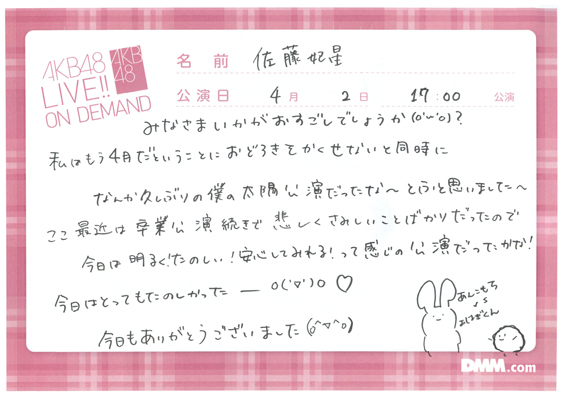 AKB48
LIVE!!
ON DEMAND
AKB
48
名前 佐藤妃星
公演日 4月 2日 17:00 公演
みなさまいかがおすごしでしょうか(o'ω'o)?
私はもう4月だということにおどろきをかくせないと同時に
なんか久しぶりの僕の太陽公演だったな〜とふと思いました〜
ここ最近は卒業公演続きで悲しくさみしいことばかりだったので
今日は明るく!たのしい!安心してみれる!って感じの公演だったかな!
今日はとってもたのしかった ― o('▽')o ♡
今日もありがとうございました(o^▽^o)
あんこもち
DMM.com